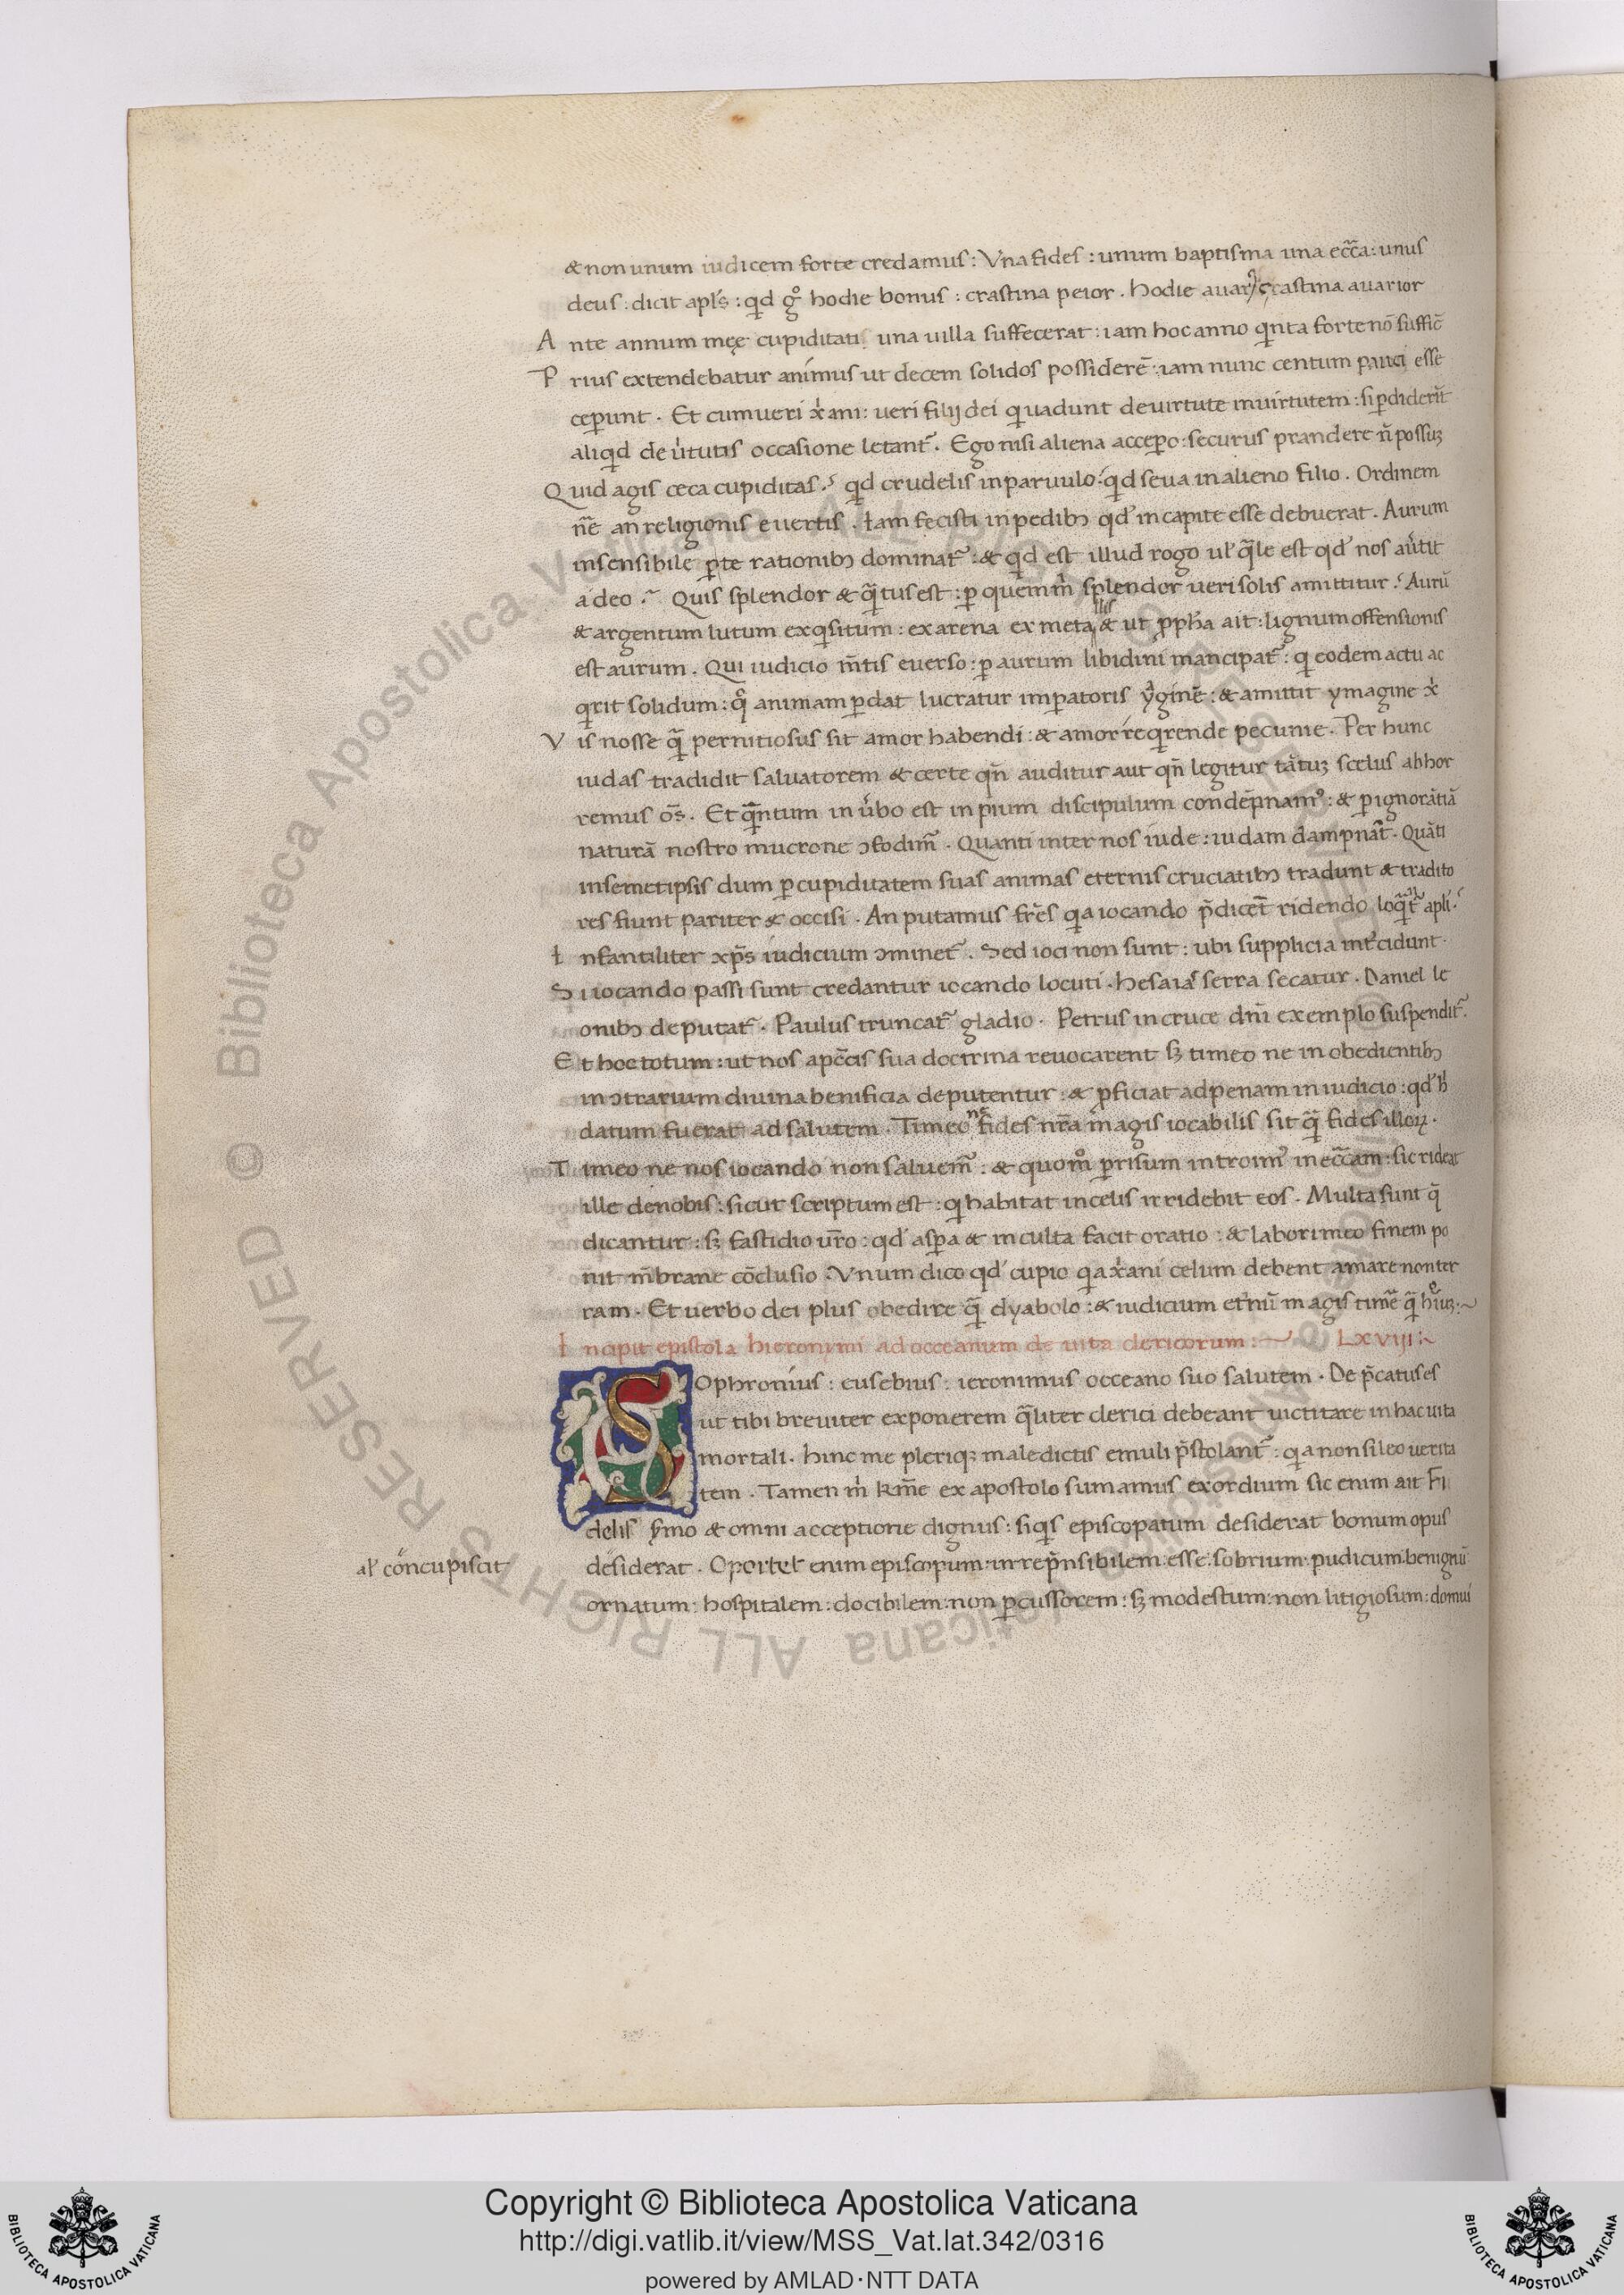 & non unum iudicem forte credamus : Vna fides : unum baptisma una ecc̃a : unus
deus : dicit apl̃s : qd g̊ hodie bonus : crastina peior . hodie auarꝰ crastina auarior
A nte annum męe cupiditati una uilla suffecerat : iam hoc anno qinta forte nõ suffic̃
P rius extendebatur animus ut decem solidos possiderẽ : iam nunc centum pauci esse
ceperunt . Et cum ueri xr̃ani : ueri filij dei qui uadunt de uirtute in uirtutem : si ꝑdiderĩt
aliqid de uirtutis occasione letant̃ . Ego nisi aliena accepero : securus prandere ñ possuꝫ
Q uid agis ceca cupiditas ? qd crudelis in paruulo : qd seua in alieno filio . Ordinem
ñe an religionis euertis . Iam fecisti in pedibꝫ qd' in capite esse debuerat . Aurum
insensibile ꝑte rationibꝫ dominat̃ : & qd est illud rogo ul' q̃le est qd' nos auertit
a deo ? Quis splendor & q̃tus est : ꝑ quem m̃ splendor ueri solis amittitur ? Aurũ
& argentum lutum exqisitum : ex arena ex metallis & ut ꝓph̃a ait : lignum offensionis
est aurum . Qui iudicio m̃tis euerso : ꝑ aurum libidini mancipat̃ : qi eodem actu ac
qirit solidum : q̊ animam ꝑdat lucratur imꝑatoris ymaginẽ : & amittit ymagine xr̃i
V is nosse q̃ pernitiosus sit amor habendi : & amor reqirende pecunie . Per hunc
iudas tradidit saluatorem & certe qñ auditur aut qñ legitur tãtuꝫ scelus abhor
remus oẽs . Et q̃ntum in uerbo est impium discipulum condẽpnamꝰ : & ꝑ ignorãtiã
naturã nostro mucrone ɔfodimꝰ . Quanti inter nos iude : iudam dampnãt . Quãti
in semetipsis dum ꝑ cupiditatem suas animas eternis cruciatibꝫ tradunt & tradito
res fiunt pariter & occisi . An putamus fr̃es qa iocando p̃dicet̃ ridendo loqũt̃ apl̃i ?
I nfantiliter xp̃s iudicium ɔminet̃ . Sed ioci non sunt : ubi supplicia int̃cidunt .
S i iocando passi sunt credantur iocando locuti . hesaias serra secatur . Daniel le
onibꝫ deputat̃ . Paulus truncat̃ gladio . Petrus in cruce dñi exemplo suspendit̃ .
E t hoc totum : ut nos a pc̃cis sua doctrina reuocarent sꝫ timeo ne in obedientibꝫ
in ɔtrarium diuina benificia deputentur : & ꝓficiat ad penam in iudicio : qd' h̃
datum fuerat ad salutem . Timeo ne fides nr̃a magis iocabilis sit q̃ fides illoꝝ .
T imeo ne nos iocando non saluemꝰ : & quom̊ ꝑ risum introimꝰ in ecc̃am : sic rideat
ille de nobis : sicut scriptum est : qi habitat in celis irridebit eos . Multa sunt q̃
dicantur : sꝫ fastidio ur̃o : qd' asꝑa & inculta facit oratio : & labori meo finem po
nit m̃brane cõclusio . Vnum dico qd' cupio qia xr̃ani celum debent amare non ter
ram . Et uerbo dei plus obedire q̃ dyabolo : & iudicium et̃nũ magis timẽ q̃ h̊ĩuꝫ :~
I ncipit epistola hieronymi ad occeanum de uita clericorum : LXVIII :~
SOphronius : eusebius : ieronimus occeano suo salutem . De p̃catus es
ut tibi breuiter exponerem q̃liter clerici debeant uictitare in hac uita
mortali . hinc me pleriqꝫ maledictis emuli p̃stolant̃ : qi a non sileo uerita
tem . Tamen m̃ kr̃me ex apostolo sumamus exordium sic enim ait Fi
delis s̃mo & omni acceptione dignus : siqis episcopatum desiderat bonum opus
al' concupiscit
desiderat . Oportet enim episcopum : inrep̃nsibilem : esse : sobrium : pudicum : benignũ
ornatum : hospitalem : docibilem : non ꝑcussorem : sꝫ modestum : non litigiosum : domui
Copyright © Biblioteca Apostolica Vaticana
http://digi.vatlib.it/view/MSS_Vat.lat.342/0316
powered by AMLAD·NTT DATA
BIBLIOTECA APOSTOLICA VATICANA
BIBLIOTECA APOSTOLICA VATICANA
© Biblioteca Apostolica Vaticana ALL RIGHTS RESERVED
© Biblioteca Apostolica Vaticana ALL RIGHTS RESERVED